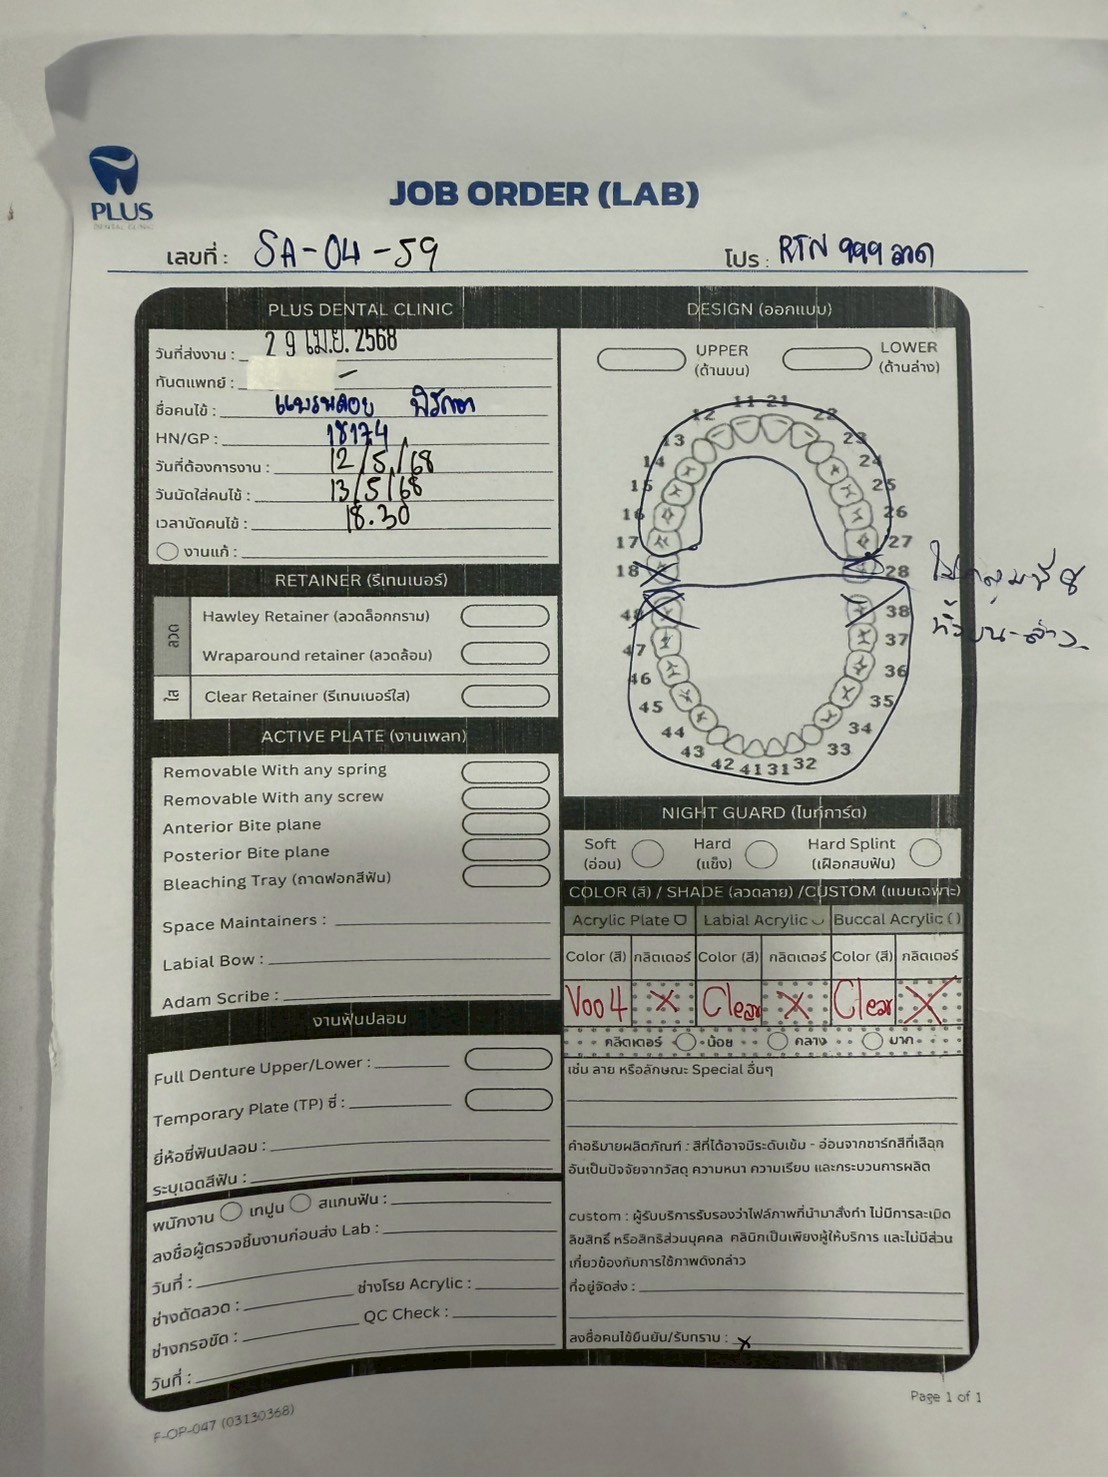 PLUS
DENTAL CLINIC
JOB ORDER (LAB)
เลขที่ : SA-04-59
โปร : RTN 999 ลวด
PLUS DENTAL CLINIC
วันที่ส่งงาน : 29 เม.ย. 2568
ทันตแพทย์ :
ชื่อคนไข้ : แพรพลอย พิรักษา
HN/GP : 18174
วันที่ต้องการงาน : 12/5/68
วันนัดใส่คนไข้ : 13/5/68
เวลานัดคนไข้ : 18.30
งานแก้ :
RETAINER (รีเทนเนอร์)
ลวด
Hawley Retainer (ลวดล็อกกราม)
Wraparound retainer (ลวดล้อม)
ใส
Clear Retainer (รีเทนเนอร์ใส)
ACTIVE PLATE (งานเพลท)
Removable With any spring
Removable With any screw
Anterior Bite plane
Posterior Bite plane
Bleaching Tray (ถาดฟอกสีฟัน)
Space Maintainers :
Labial Bow :
Adam Scribe :
งานฟันปลอม
Full Denture Upper/Lower :
Temporary Plate (TP) ซี่ :
ยี่ห้อซี่ฟันปลอม :
ระบุเฉดสีฟัน :
พนักงาน เทปูน สแกนฟัน :
ลงชื่อผู้ตรวจชิ้นงานก่อนส่ง Lab :
วันที่ :
ช่างดัดลวด : ช่างโรย Acrylic :
ช่างกรอขัด : QC Check :
วันที่ :
DESIGN (ออกแบบ)
UPPER
(ด้านบน)
LOWER
(ด้านล่าง)
11 21
12 22
13 23
14 24
15 25
16 26
17 27
18 28
48 38
47 37
46 36
45 35
44 34
43 33
42 41 31 32
ไม่คลุมซี่ 8
ทั้งบน-ล่าง
NIGHT GUARD (ไนท์การ์ด)
Soft
(อ่อน)
Hard
(แข็ง)
Hard Splint
(เฝือกสบฟัน)
COLOR (สี) / SHADE (ลวดลาย) /CUSTOM (แบบเฉพาะ)
Acrylic Plate Labial Acrylic Buccal Acrylic ( )
Color (สี) กลิตเตอร์ Color (สี) กลิตเตอร์ Color (สี) กลิตเตอร์
V004 X Clear X Clear X
กลิตเตอร์ น้อย กลาง มาก
เช่น ลาย หรือลักษณะ Special อื่นๆ
คำอธิบายผลิตภัณฑ์ : สีที่ได้อาจมีระดับเข้ม - อ่อนจากชาร์ทสีที่เลือก
อันเป็นปัจจัยจากวัสดุ ความหนา ความเรียบ และกระบวนการผลิต
custom : ผู้รับบริการรับรองว่าไฟล์ภาพที่นำมาสั่งทำ ไม่มีการละเมิด
ลิขสิทธิ์ หรือสิทธิส่วนบุคคล คลินิกเป็นเพียงผู้ให้บริการ และไม่มีส่วน
เกี่ยวข้องกับการใช้ภาพดังกล่าว
ที่อยู่จัดส่ง :
ลงชื่อคนไข้ยืนยัน/รับทราบ : x
Page 1 of 1
F-OP-047 (03130368)